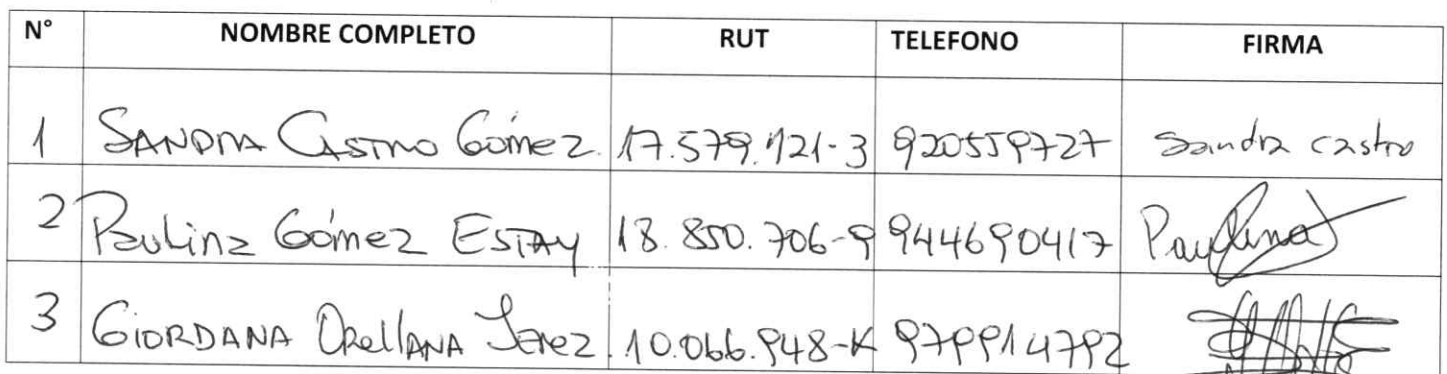 N° NOMBRE COMPLETO RUT TELEFONO FIRMA
1 SANDRA CASTRO Gómez. 17.579.121-3 920559727 Sandra Castro
2 Paulina Gómez ESTAY 18.850.706-9 944690417 Paulina
3 GIORDANA ORellANA Jerez. 10.066.948-K 979914792